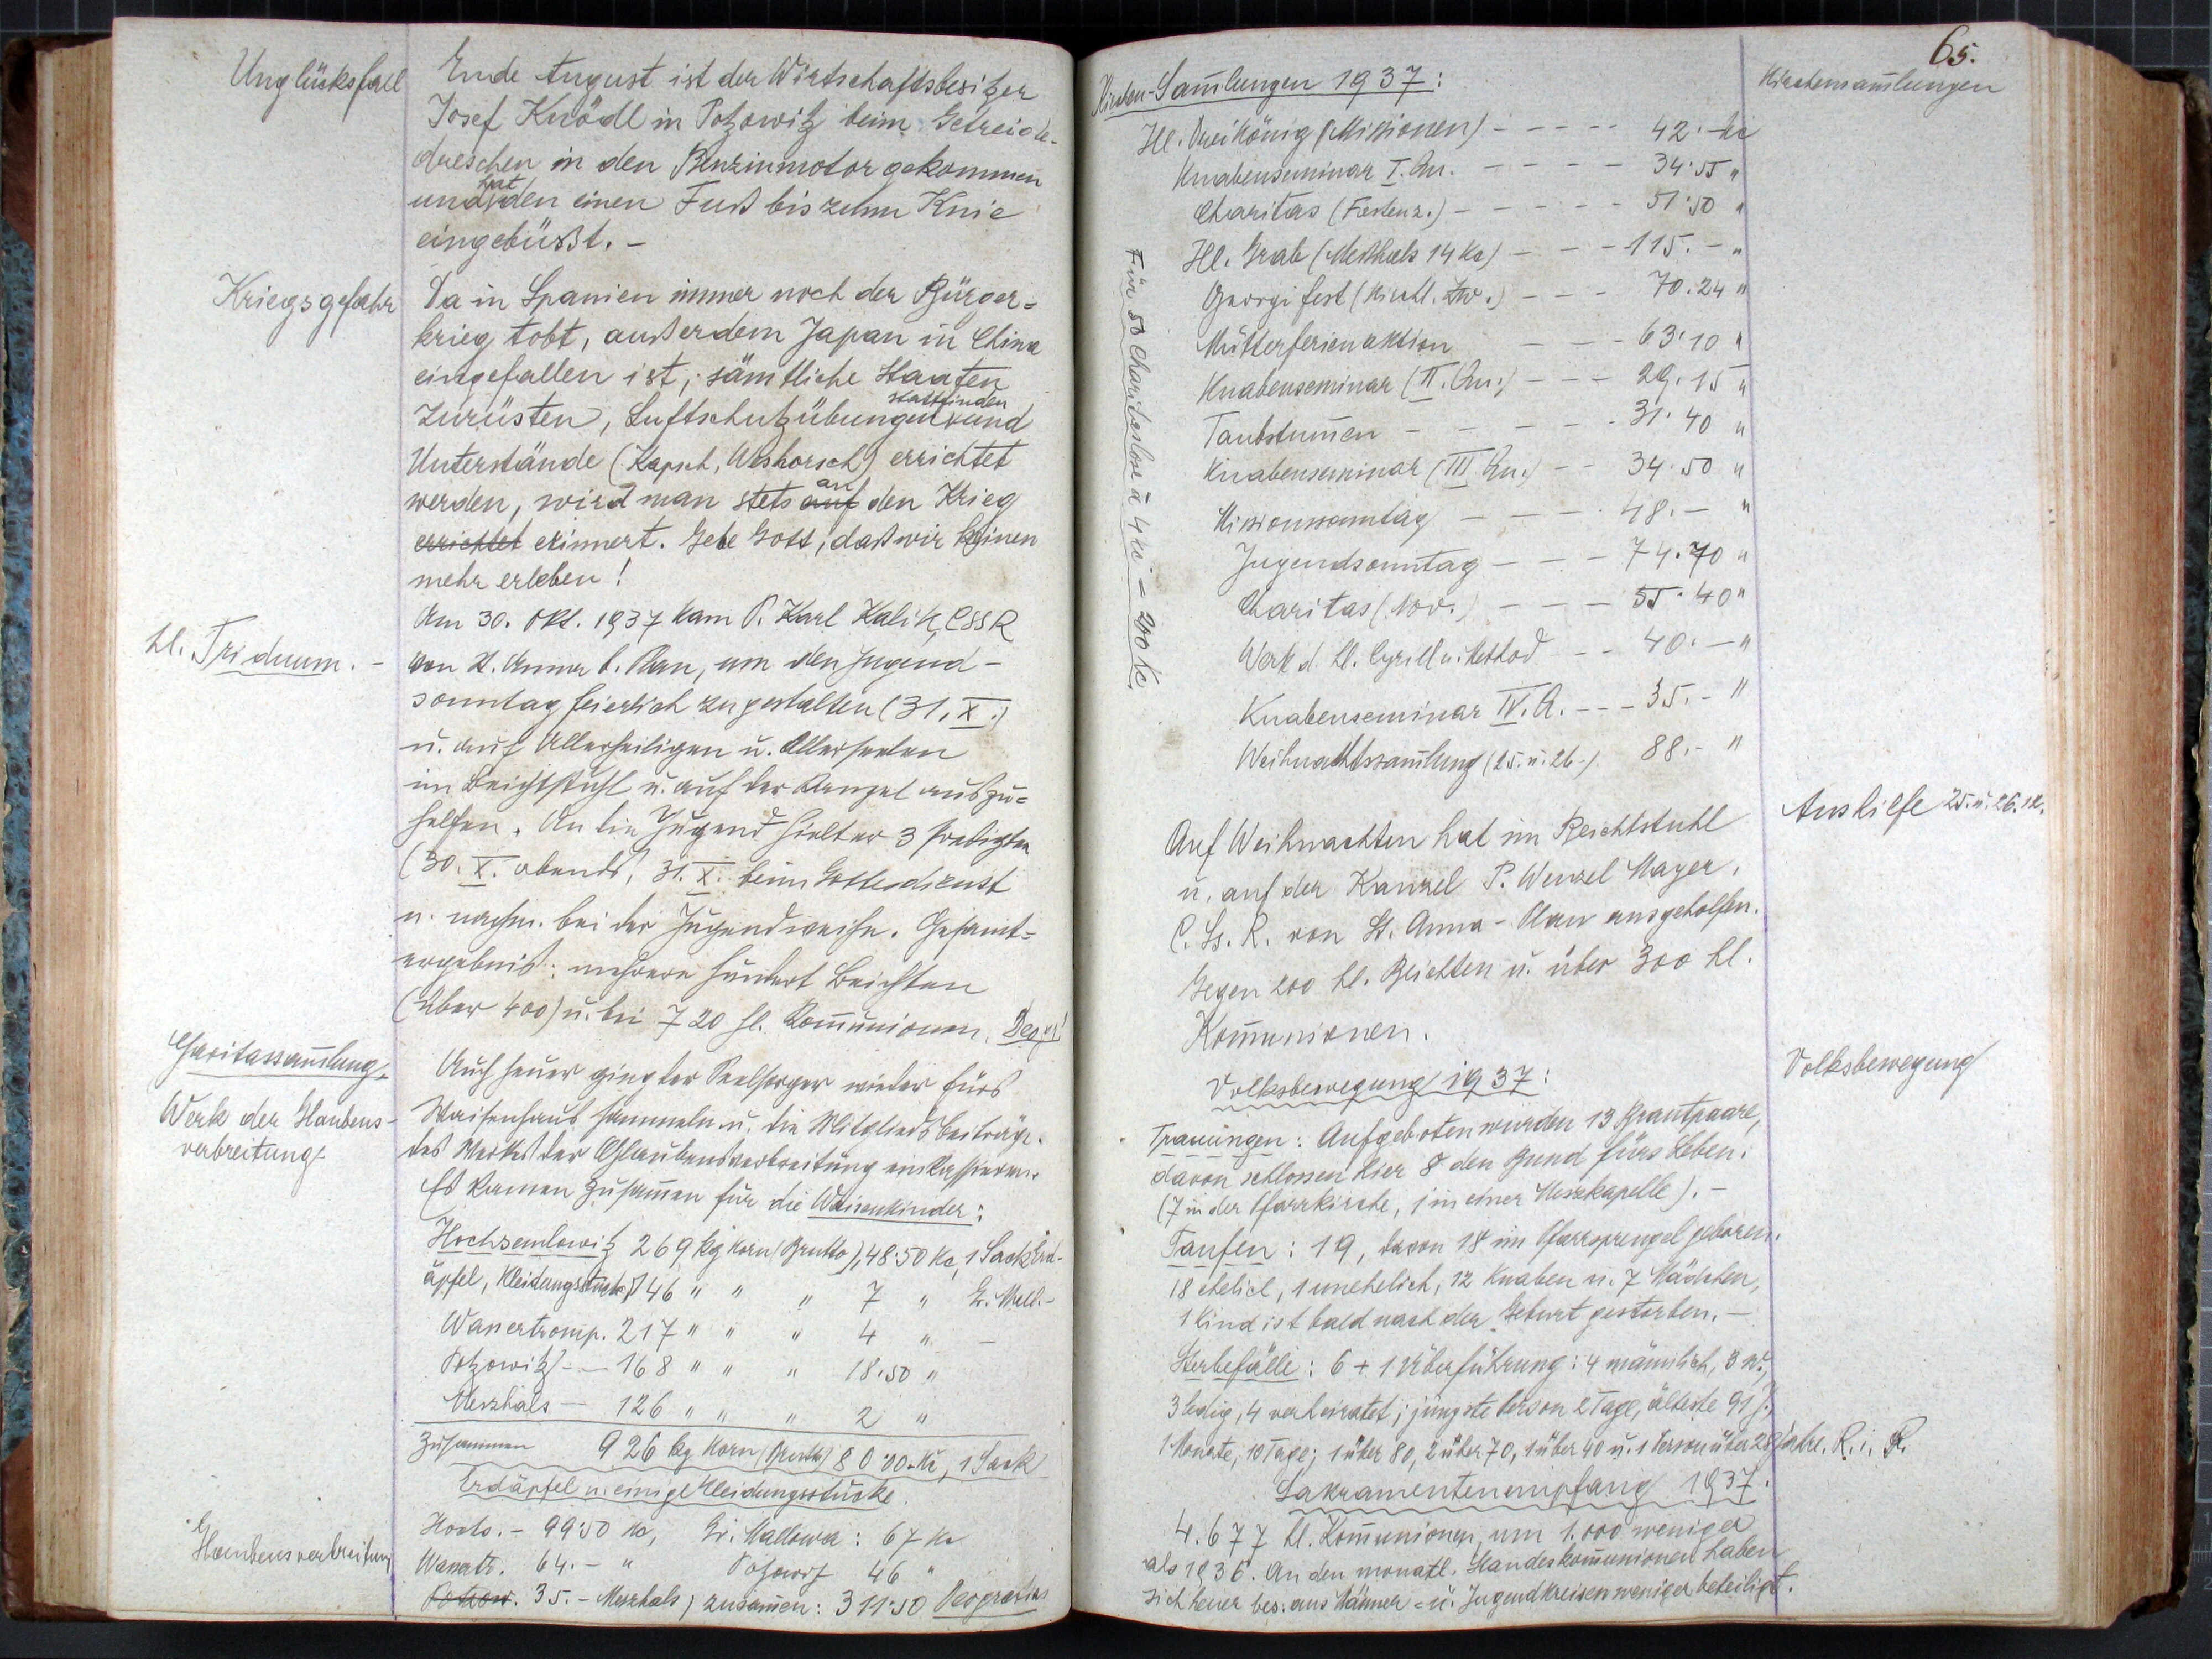 Unglücksfall
Ende August ist der Wirtschaftsbesitzer
Josef Knödl in Potzowitz beim Getreide-
dreschen in den Benzinmotor gekommen
und hat den einen Fuß bis zum Knie
eingebüßt. -
Kriegsgefahr
Da in Spanien immer noch der Bürger=
krieg tobt, außerdem Japan in China
eingefallen ist, sämtliche Staaten
zurüsten, Luftschutzübungen stattfinden und
Unterstände (Kapsch, Weshorsch) errichtet
werden, wird man stets auf an den Krieg
errichtet erinnert. Gebe Gott, daß wir keinen
mehr erleben!
hl. Triduum. -
Am 30. Okt. 1937 kam P. Karl Kalik, CSSR
von St. Anna b. Plan, um den Jugend-
sonntag feierlich zu gestalten (31. X.)
u. auf Allerheiligen u. Allerseelen
im Beichtstuhl u. auf der Kanzel auszu=
helfen. An die Jugend hielt er 3 Predigten
(30. X. abends, 31. X. beim Gottesdienst
u. nachm. bei der Jugendweihe. Gesamt=
ergebnis: mehrere hundert Beichten
(über 400) u. bei 720 hl. Kom̄unionen.
Charitassam̄lung.
Werk der Glaubens-
verbreitung.
Auch heuer ging der Seelsorger wieder fürs
Waisenhaus sammeln u. die Mitgliedsbeiträge
des Werkes der Glaubensverbreitung einkassieren.
Es kamen zusam̄en für die Waisenkinder:
Hochsemlowitz 269 kg Korn (Brutto), 48·50 Kc, 1 Sack Erd-
äpfel, Kleidungsstücke 46 " " " 7 " Gr. Mall.-
Wanertromp. 217 " " " 4 " -
Potzowitz - - 168 " " " 18·50 "
Merzhals - 126 " " " 2 "
Zusammen 926 kg Korn (Brutto) 80·00 Kč, 1 Sack
Erdäpfel u. einige Kleidungsstücke.
Glaubensverbreitung
Hochs. - 99·50 Kc, Gr. Mallowa: 67 Kc
Wanertr. 64.- " Potzowitz 46 "
Potzow. 35.- Merzhals; zusam̄en: 311·50 Deo gratias
65.
Kirchen-Sam̄lungen 1937:
Kirchensam̄lungen
Hl. Dreikönig (Missionen) - - - - 42.- Kc
Knabenseminar I. Qu. - - - - 34·55 "
Charitas (Fastenz.) - - - - - 51·50 "
Hl. Grab (Merzhals 14 Kc) - - - 115.- "
Georgifest (kirchl. Zw.) - - - 70.24 "
Mütterferienaktion - - - 63·10 "
Knabenseminar (II. Qu.) - - - 29.15 "
Taubstum̄en - - - - - 31·40 "
Knabenseminar (III Qu.) - - 34.50 "
Missionssonntag - - - - 48.- "
Jugendsonntag - - - 74.70 "
Charitas (Nov.) - - - 55·40 "
Werk d. hl. Cyrill u. Method - - 40.- "
Knabenseminar IV. Q. - - - 35.- "
Weihnachtssam̄lung (25. u. 26.) 88.- "
Für 50 Charitaslose à 4 Kc = 200 Kc.
Aushilfe 25. u. 26.12.
Auf Weihnachten hat im Beichtstuhl
u. auf der Kanzel P. Wenzel Mayer,
C. Ss. R. von St. Anna - Plan ausgeholfen.
Gegen 200 hl. Beichten u. über 300 hl.
Kom̄unionen.
Volksbewegung
Volksbewegung 1937:
Trauungen: Aufgeboten wurden 13 Brautpaare,
davon schlossen hier 8 den Bund fürs Leben:
(7 in der Pfarrkirche, 1 in einer Messkapelle). -
Taufen: 19, davon 18 im Pfarrsprengel geboren.
18 ehelich, 1 unehelich, 12 Knaben u. 7 Mädchen,
1 Kind ist bald nach der Geburt gestorben. -
Sterbefälle: 6 + 1 Überführung: 4 männlich, 3 w.,
3 ledig, 4 verheiratet; jüngste Person 2 Tage, älteste 91 J.,
1 Monate, 10 Tage; 1 über 80, 2 über 70, 1 über 40 u. 1 Person über 28 Jahre. R. i. P.
Sakramentenempfang 1937.
4.677 hl. Kom̄unionen, um 1.000 weniger
als 1936. An den monatl. Standeskom̄unionen haben
sich heuer bes. aus Männer- u. Jugendkreisen weniger beteiligt.